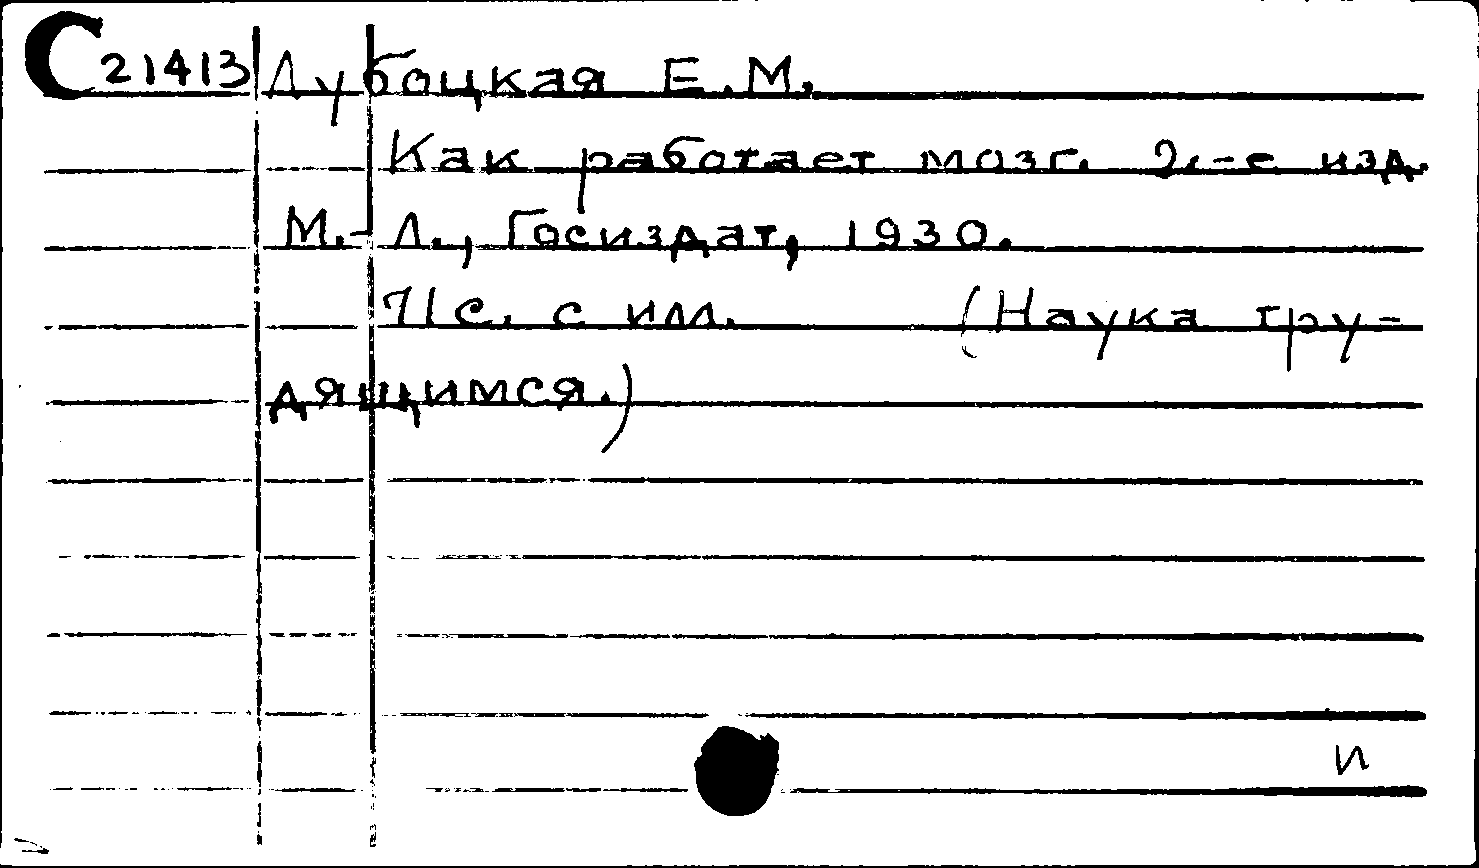 С 21413 Дубоцкая Е.М.
Как работает мозг. 2-е изд.
М.-Л., Госиздат, 1930.
71с. с илл. (Наука тру-
дящимся.)
и